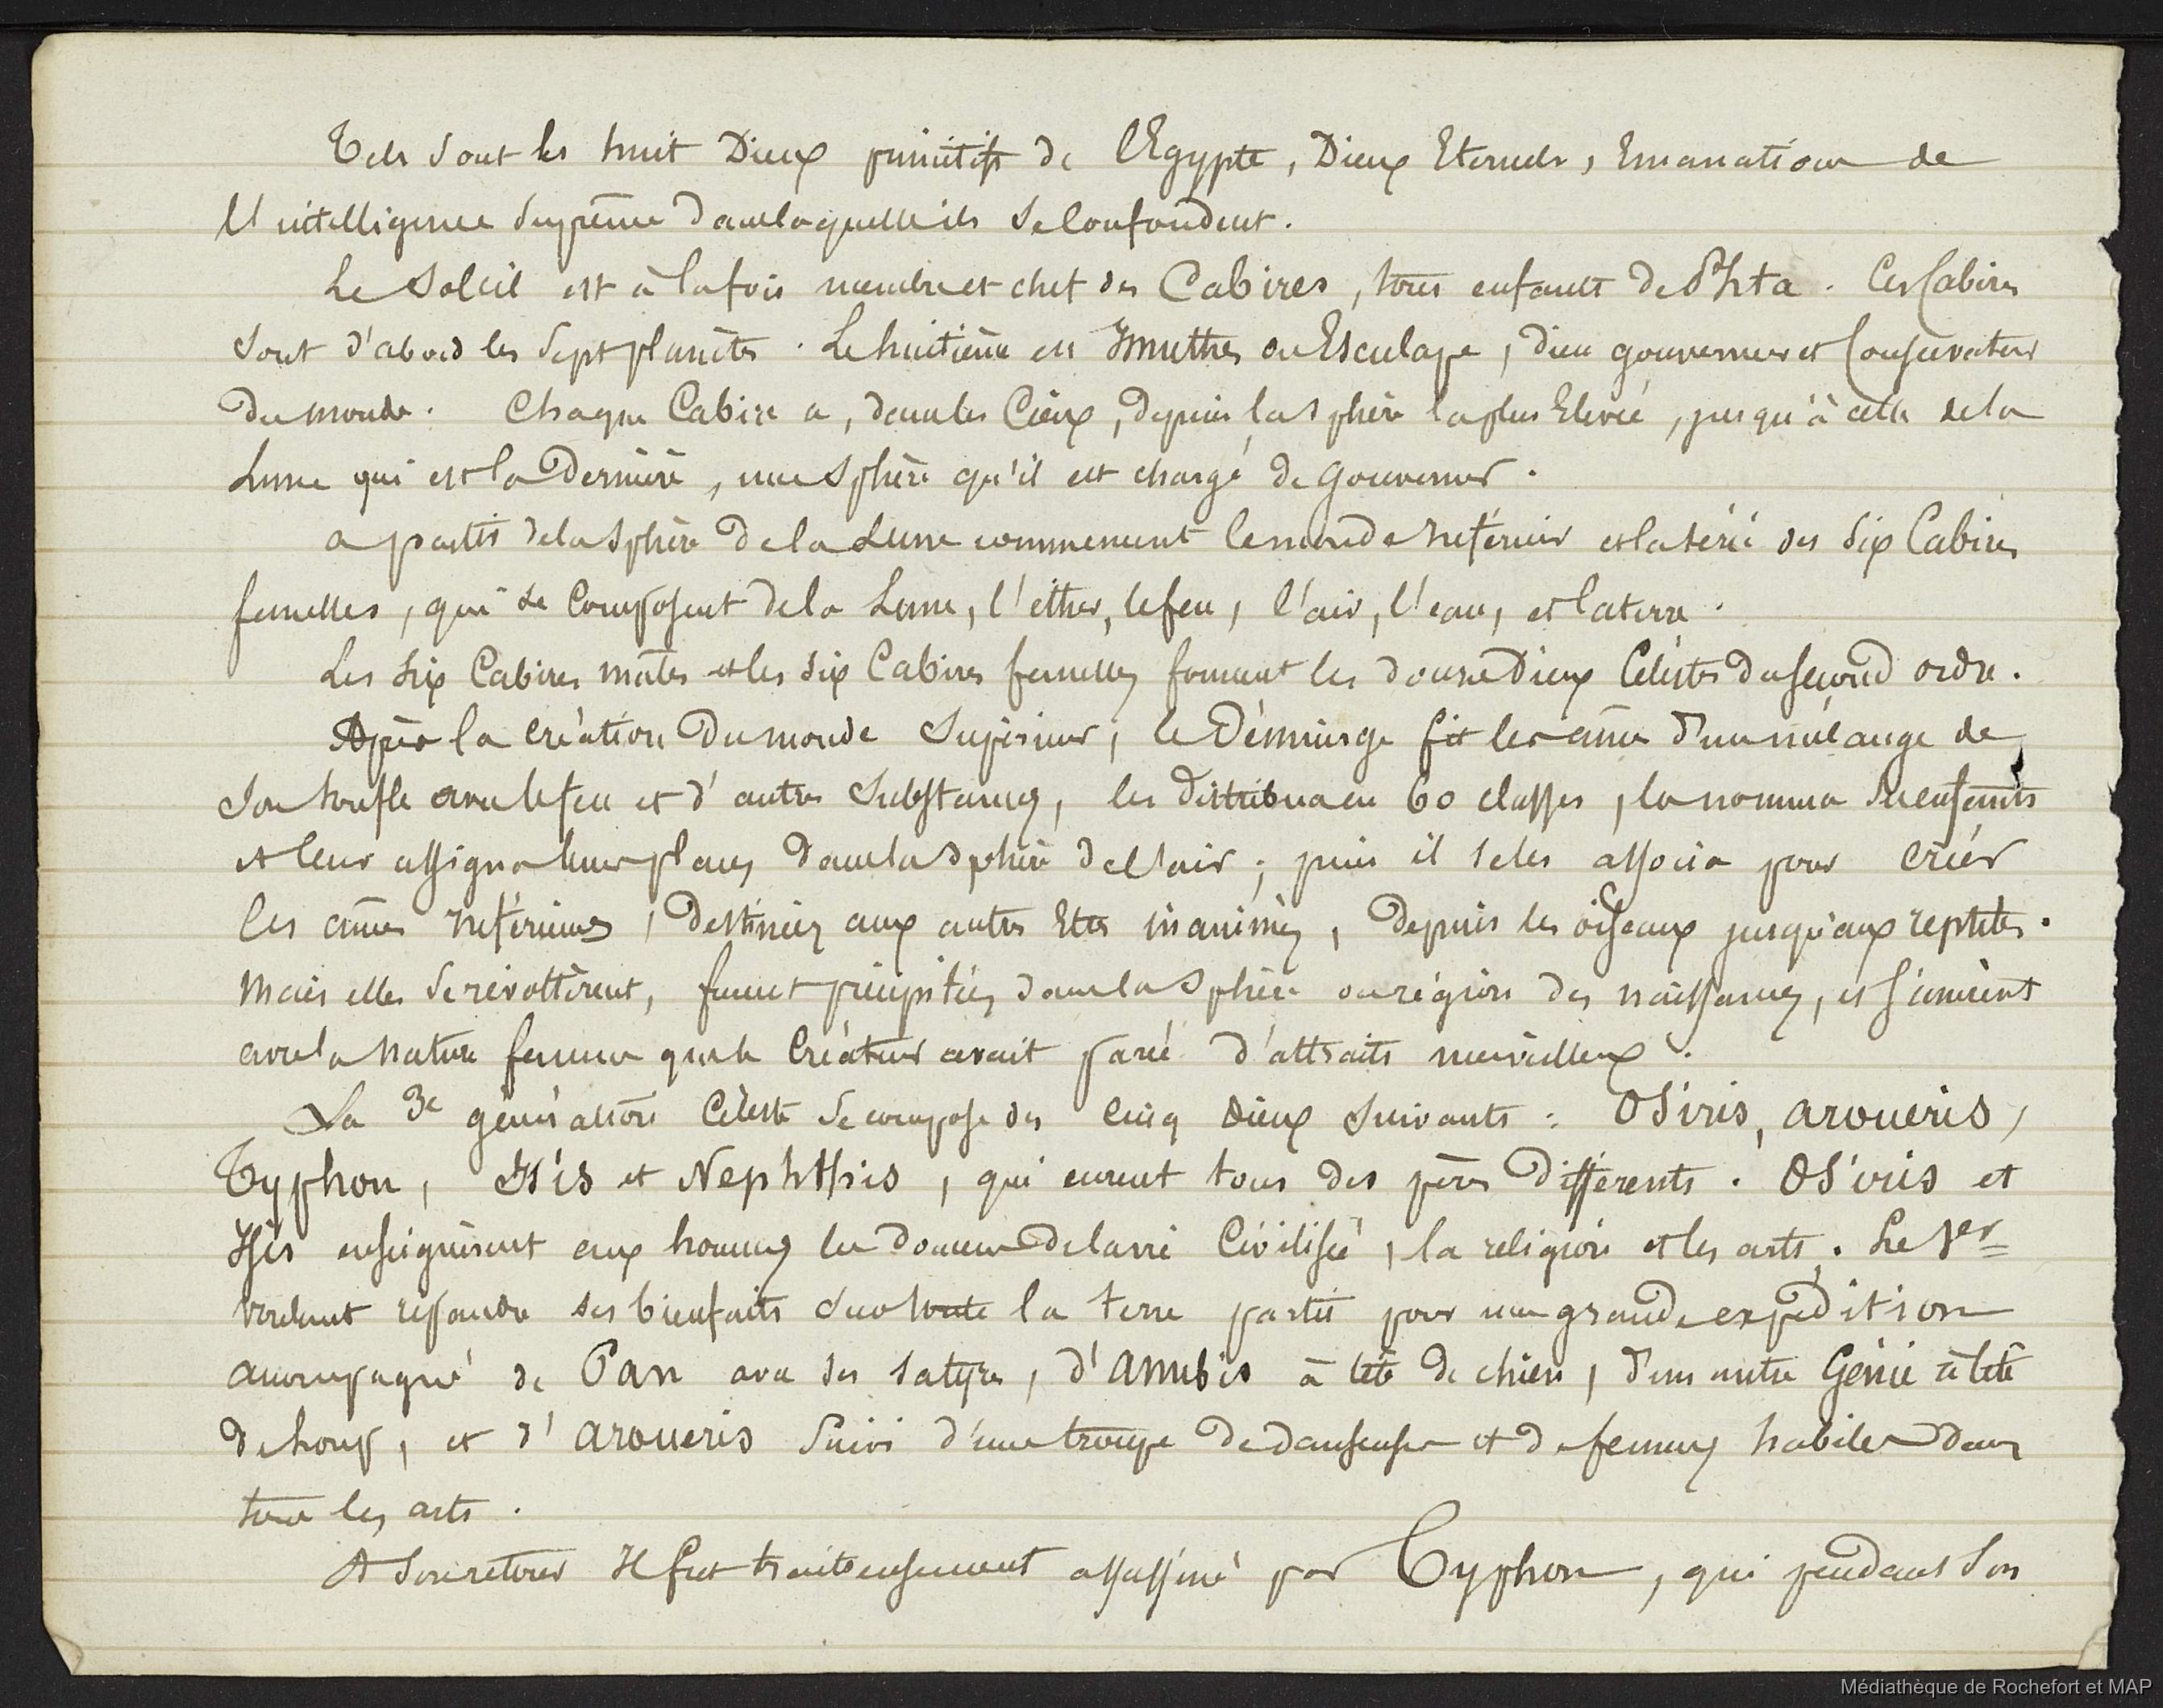 Tels sont les huit Dieux primitifs de l'Egypte, Dieux Eternels, Emanations de
l'intelligence suprême dans laquelle ils se confondent.
Le Soleil est à la fois membre et chef des Cabires, tous enfants de Phta. Ces Cabires
sont d'abord les sept planètes. Le huitième est Imuthes ou Esculape, dieu gouverneur et Conservateur
du monde. Chaque Cabire a, dans les Cieux, depuis la sphère la plus Elevée, jusqu'à celle de la
Lune qui est la Dernière, une sphère qu'il est chargé de gouverner.
a partir de la sphère de la Lune commencent le monde inférieur et la série des six Cabires
femelles, qui se composent de la Lune, l'éther, le feu, l'air, l'eau, et la terre.
Les six Cabires mâles et les six Cabires femelles forment les douze Dieux Célestes du second ordre.
Après la création du monde supérieur, le Démiurge fit les âmes d'un mélange de
son souffle avec le feu et d'autres substances, les distribua en 60 classes, les nomma ses enfants
et leur assigna leurs places dans la sphère de l'air; puis il se les associa pour créer
les âmes inférieures, destinées aux autres Etres inanimés, depuis les oiseaux jusqu'aux reptiles.
Mais elles se révoltèrent, furent précipitées dans la sphère ou région des naissances, et s'unirent
avec la nature femme que le Créateur avait paré d'attraits merveilleux.
La 3e génération Céleste se compose des cinq Dieux suivants: Osiris, Aroueris,
Typhon, Isis et Nephthis, qui eurent tous des pères différents. Osiris et
Isis enseignèrent aux hommes les douceurs de la vie Civilisée, la religion et les arts. Le 1er
voulant répandre ses bienfaits sur toute la terre partit pour une grande expédition
accompagné de Pan avec ses satyres, d'Anubis à tête de chien, d'un autre Génie à tête
de loup, et d'Aroueris suivi d'une troupe de danseuses et de femmes habiles dans
tous les arts.
A son retour Il fut traiteusement assassiné par Typhon, qui pendant son
Médiathèque de Rochefort et MAP